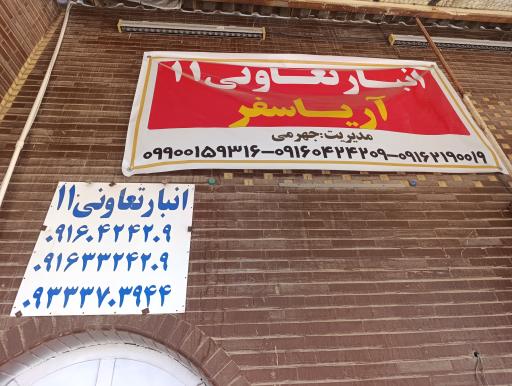 انبار تعاونی ۱۱
آریا سفر
مدیریت: جهرمی
۰۹۹۰۰۱۵۹۳۱۶-۰۹۱۶۰۴۲۴۲۰۹-۰۹۱۶۲۱۹۰۰۱۹
انبار تعاونی ۱۱
۰۹۱۶۰۴۲۴۲۰۹
۰۹۱۶۳۳۲۴۲۰۹
۰۹۳۳۳۷۰۳۹۴۴